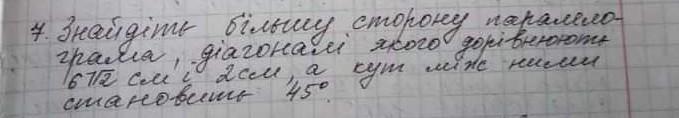 7. Знайдіть більшу сторону паралело-
грама, діагоналі якого дорівнюють
6√2 см і 2см, а кут між ними
становить 45°.